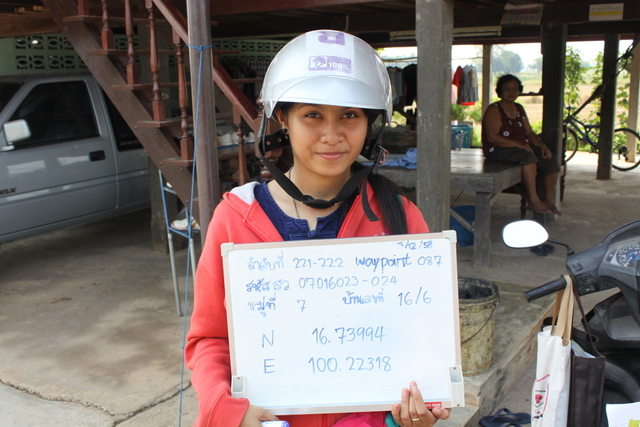 5/12/58
ลำดับที่ 221-222 waypoint 087
รหัส สว 07016023-024
หมู่ที่ 7 บ้านเลขที่ 16/6
N 16.73994
E 100.22318